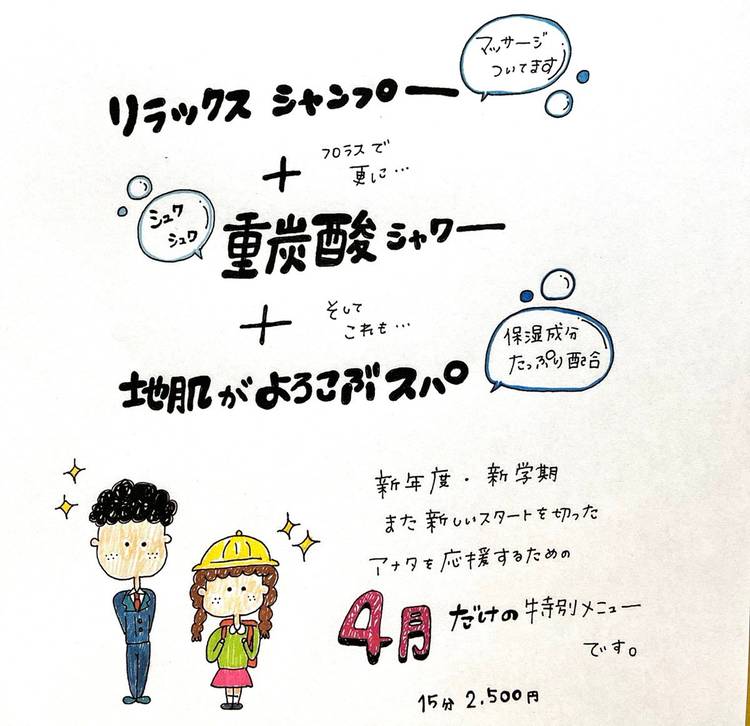 マッサージ
ついてます
リラックス シャンプー
+ フロラスで
更に…
シュワ
シュワ
重炭酸シャワー
+ そして
これも…
保湿成分
たっぷり配合
地肌がよろこぶスパ
新年度・新学期
また新しいスタートを切った
アナタを応援するための
4月だけの特別メニュー
です。
15分 2.500円